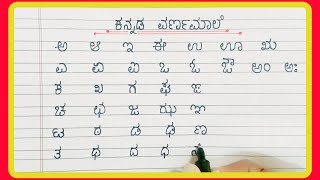 ಕನ್ನಡ ವರ್ಣಮಾಲೆ
ಅ ಆ ಇ ಈ ಉ ಊ ಋ
ಎ ಏ ಐ ಒ ಓ ಔ ಅಂ ಅಃ
ಕ ಖ ಗ ಘ ಙ
ಚ ಛ ಜ ಝ ಞ
ಟ ಠ ಡ ಢ ಣ
ತ ಥ ದ ಧ